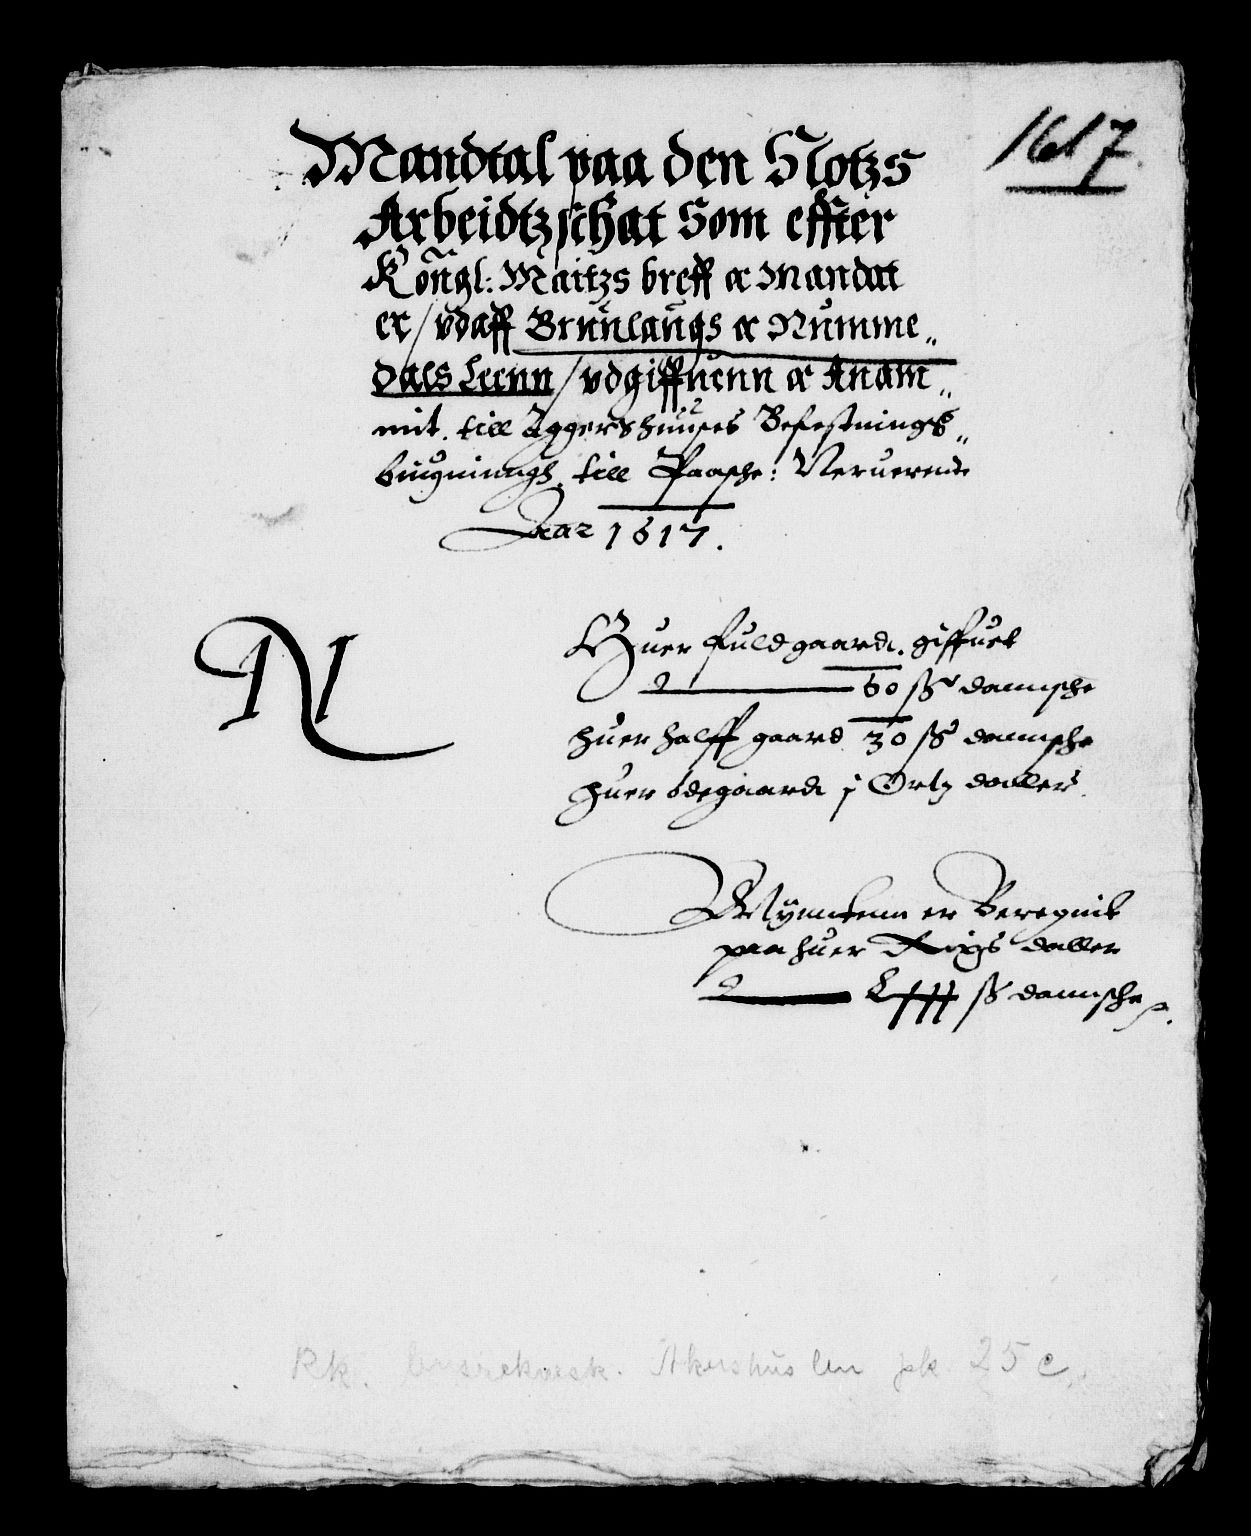 1617.
Mandtal paa den Slotzs
Arbeidtzschat Som effter
Kongl: Maitzs breff oc Mandat
er / vdaff Brunlaugs oc Numme„
dals Leenn / vdgiffuenn oc Anam„
mit. till Aggershuuses Befestnings„
buugninngh. till Paasche: Neruerende
Aar 1617.
N
Huer fuldgaard. giffuet
60 ß dannsche
huer halff gaard 30 ß dannsche
huer ödegaard j Ortz daller
Myntenn er Beregnit
paa huer Rigs daller
ß dannsche
Rk. lensreknsk. Akershus len pk 25 c.